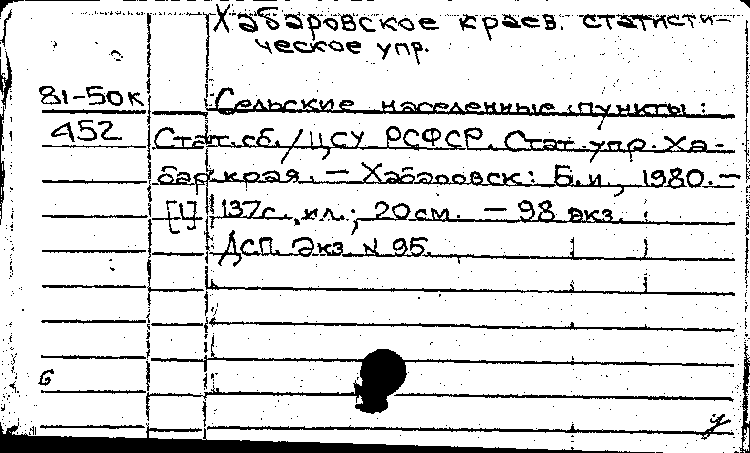 Хабаровское краев. статисти-
ческое упр.
81-50к Сельские населенные пункты:
452 Стат. сб. / ЦСУ РСФСР. Стат. упр. Ха-
бар. края. — Хабаровск: Б.и., 1980. —
[1] 137с., ил.; 20см. — 98 экз.
ДСП. Экз. N 95.
6
у